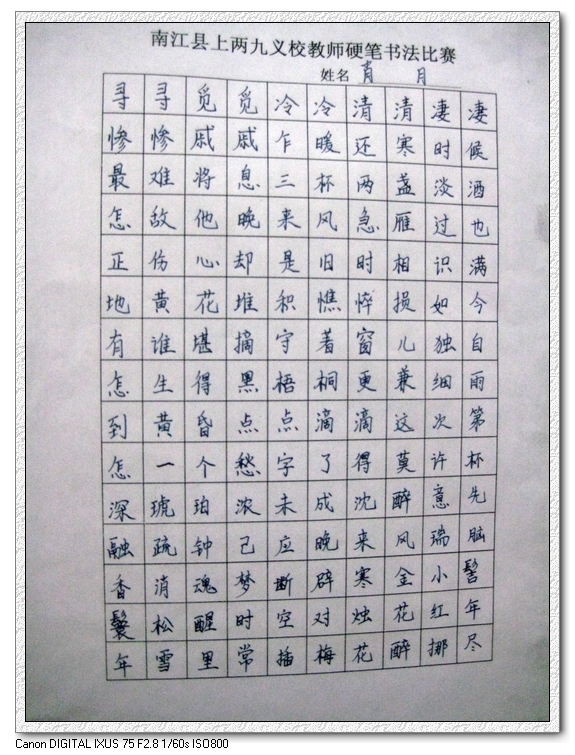 南江县上两九义校教师硬笔书法比赛
姓名 肖 月
寻寻觅觅冷冷清清凄凄
惨惨戚戚乍暖还寒时候
最难将息三杯两盏淡酒
怎敌他晚来风急雁过也
正伤心却是旧时相识满
地黄花堆积憔悴损如今
有谁堪摘守着窗儿独自
怎生得黑梧桐更兼细雨
到黄昏点点滴滴这次第
怎一个愁字了得莫许杯
深琥珀浓未成沈醉意先
融疏钟己应晚来风瑞脑
香消魂梦断辟寒金小髻
鬟松醒时空对烛花红年
年雪里常插梅花醉挪尽
Canon DIGITAL IXUS 75 F2.8 1/60s ISO800